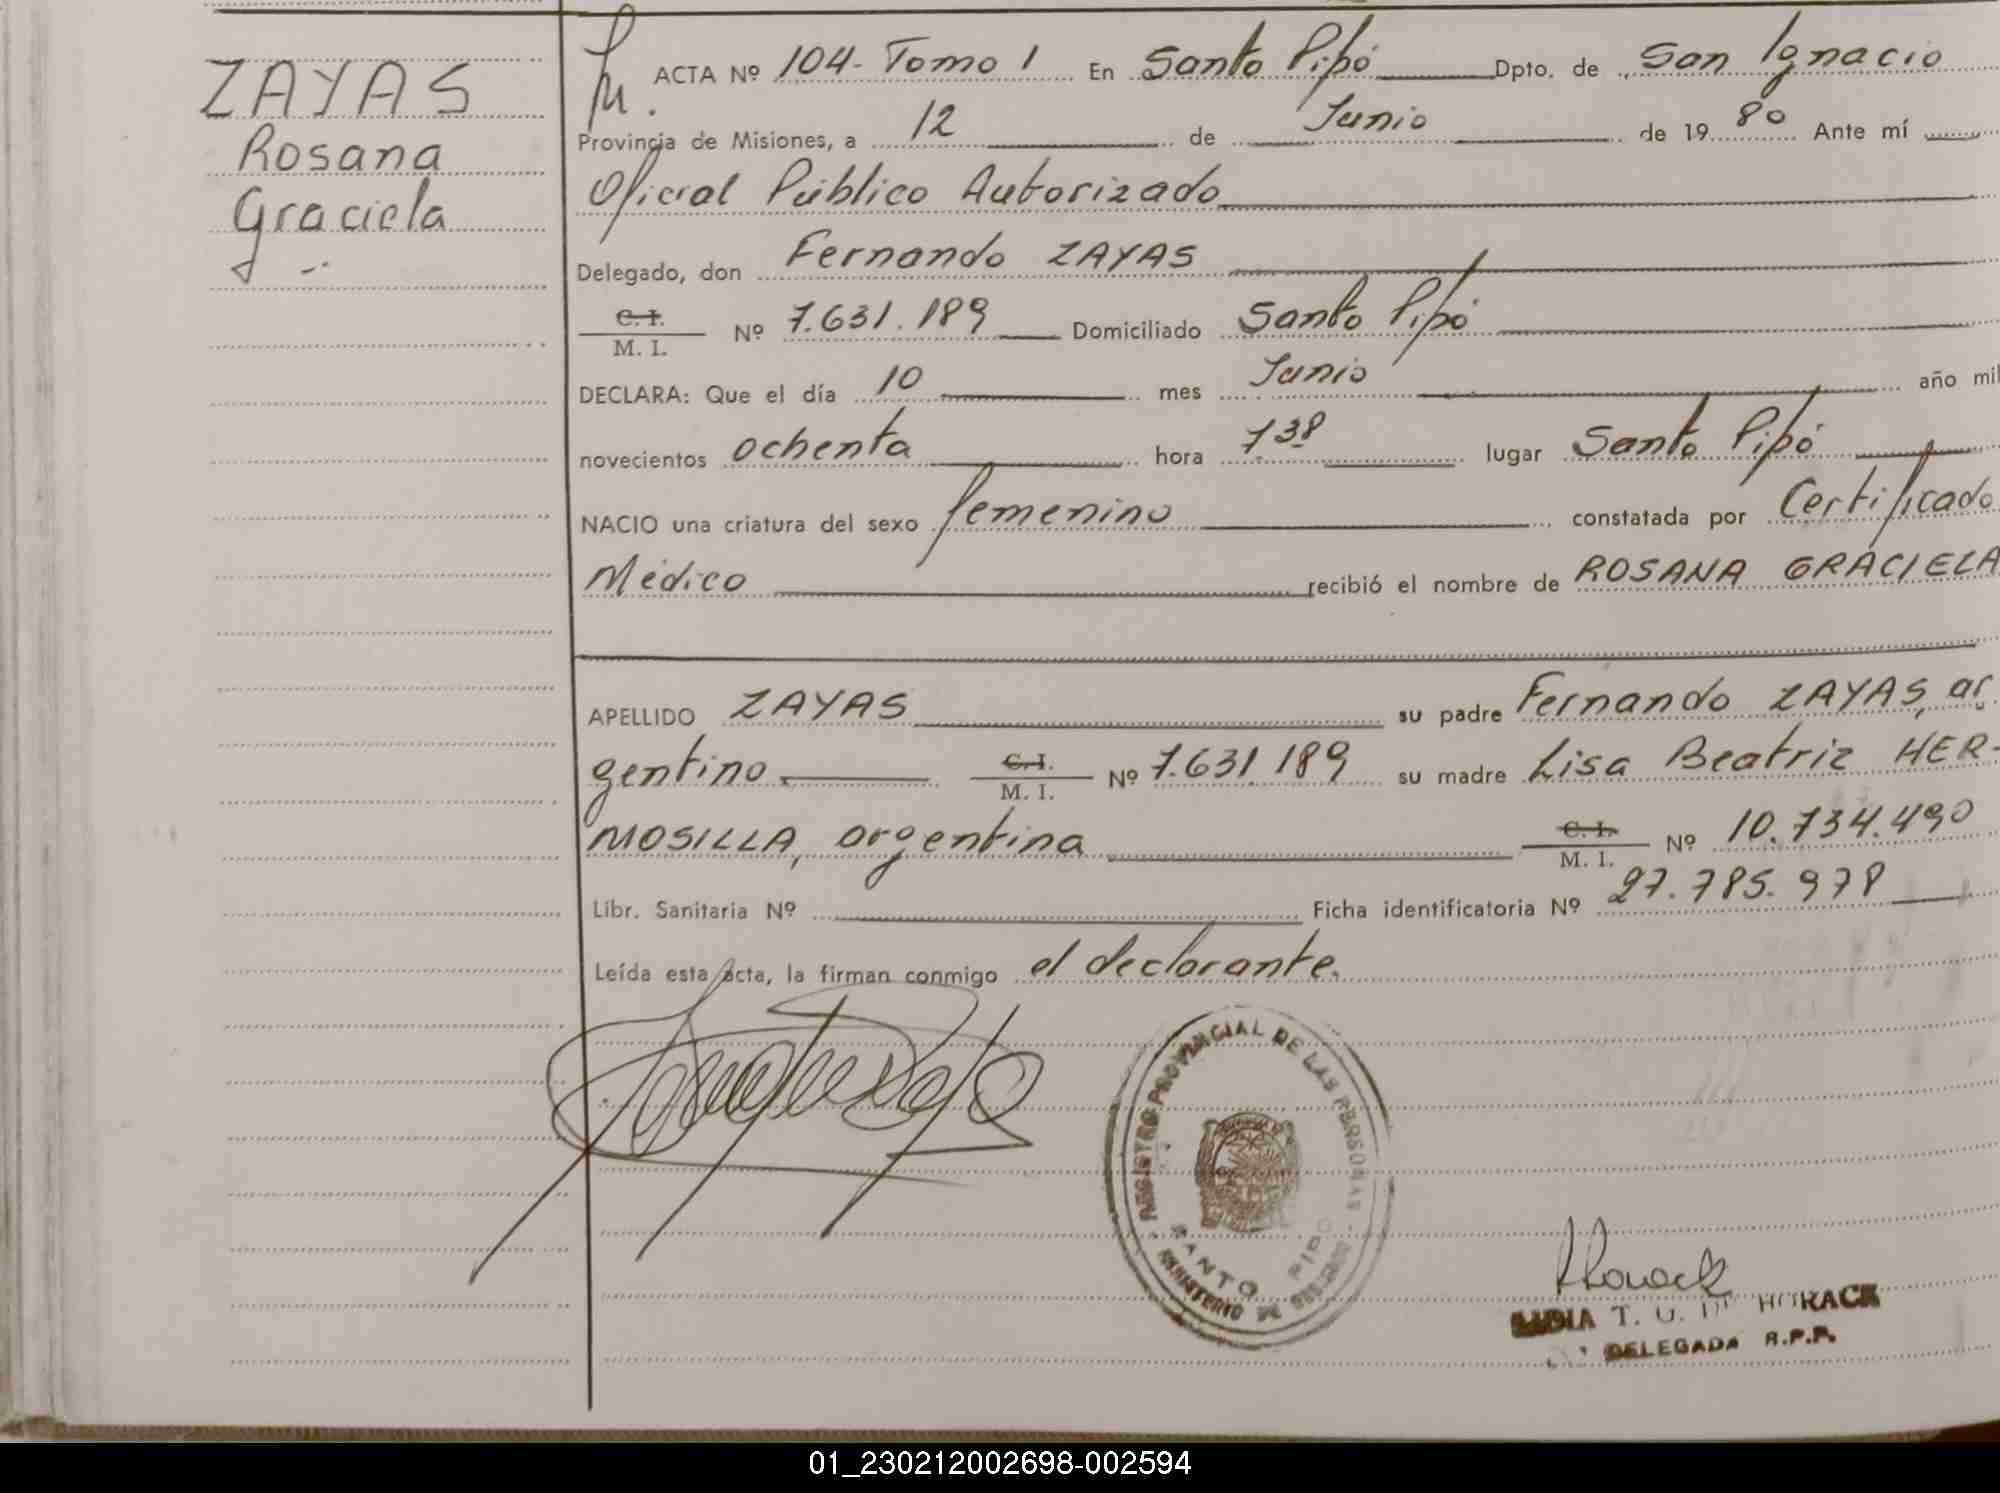 ZAYAS
Rosana
Graciela
ACTA Nº 104- Tomo 1 En Santo Pipó Dpto. de San Ignacio
Provincia de Misiones, a 12 de Junio de 1980 Ante mí
Oficial Público Autorizado
Delegado, don Fernando ZAYAS
C. I.
M. I. Nº 7.631.189 Domiciliado Santo Pipó
DECLARA: Que el día 10 mes Junio año mil
novecientos ochenta hora 7.30 lugar Santo Pipó
NACIO una criatura del sexo femenino constatada por Certificado
Médico recibió el nombre de ROSANA GRACIELA
APELLIDO ZAYAS su padre Fernando ZAYAS, ar
gentino C. I.
M. I. Nº 7.631.189 su madre Lisa Beatriz HER-
MOSILLA, argentina C. I.
M. I. Nº 10.734.490
Libr. Sanitaria Nº Ficha identificatoria Nº 27.785.978
Leída esta acta, la firman conmigo el declarante.
REGISTRO PROVINCIAL DE LAS PERSONAS
SANTO PIPO
MINISTERIO DE GOBIERNO
LIDIA T. G. DE HORACK
DELEGADA R.P.P.
01_230212002698-002594